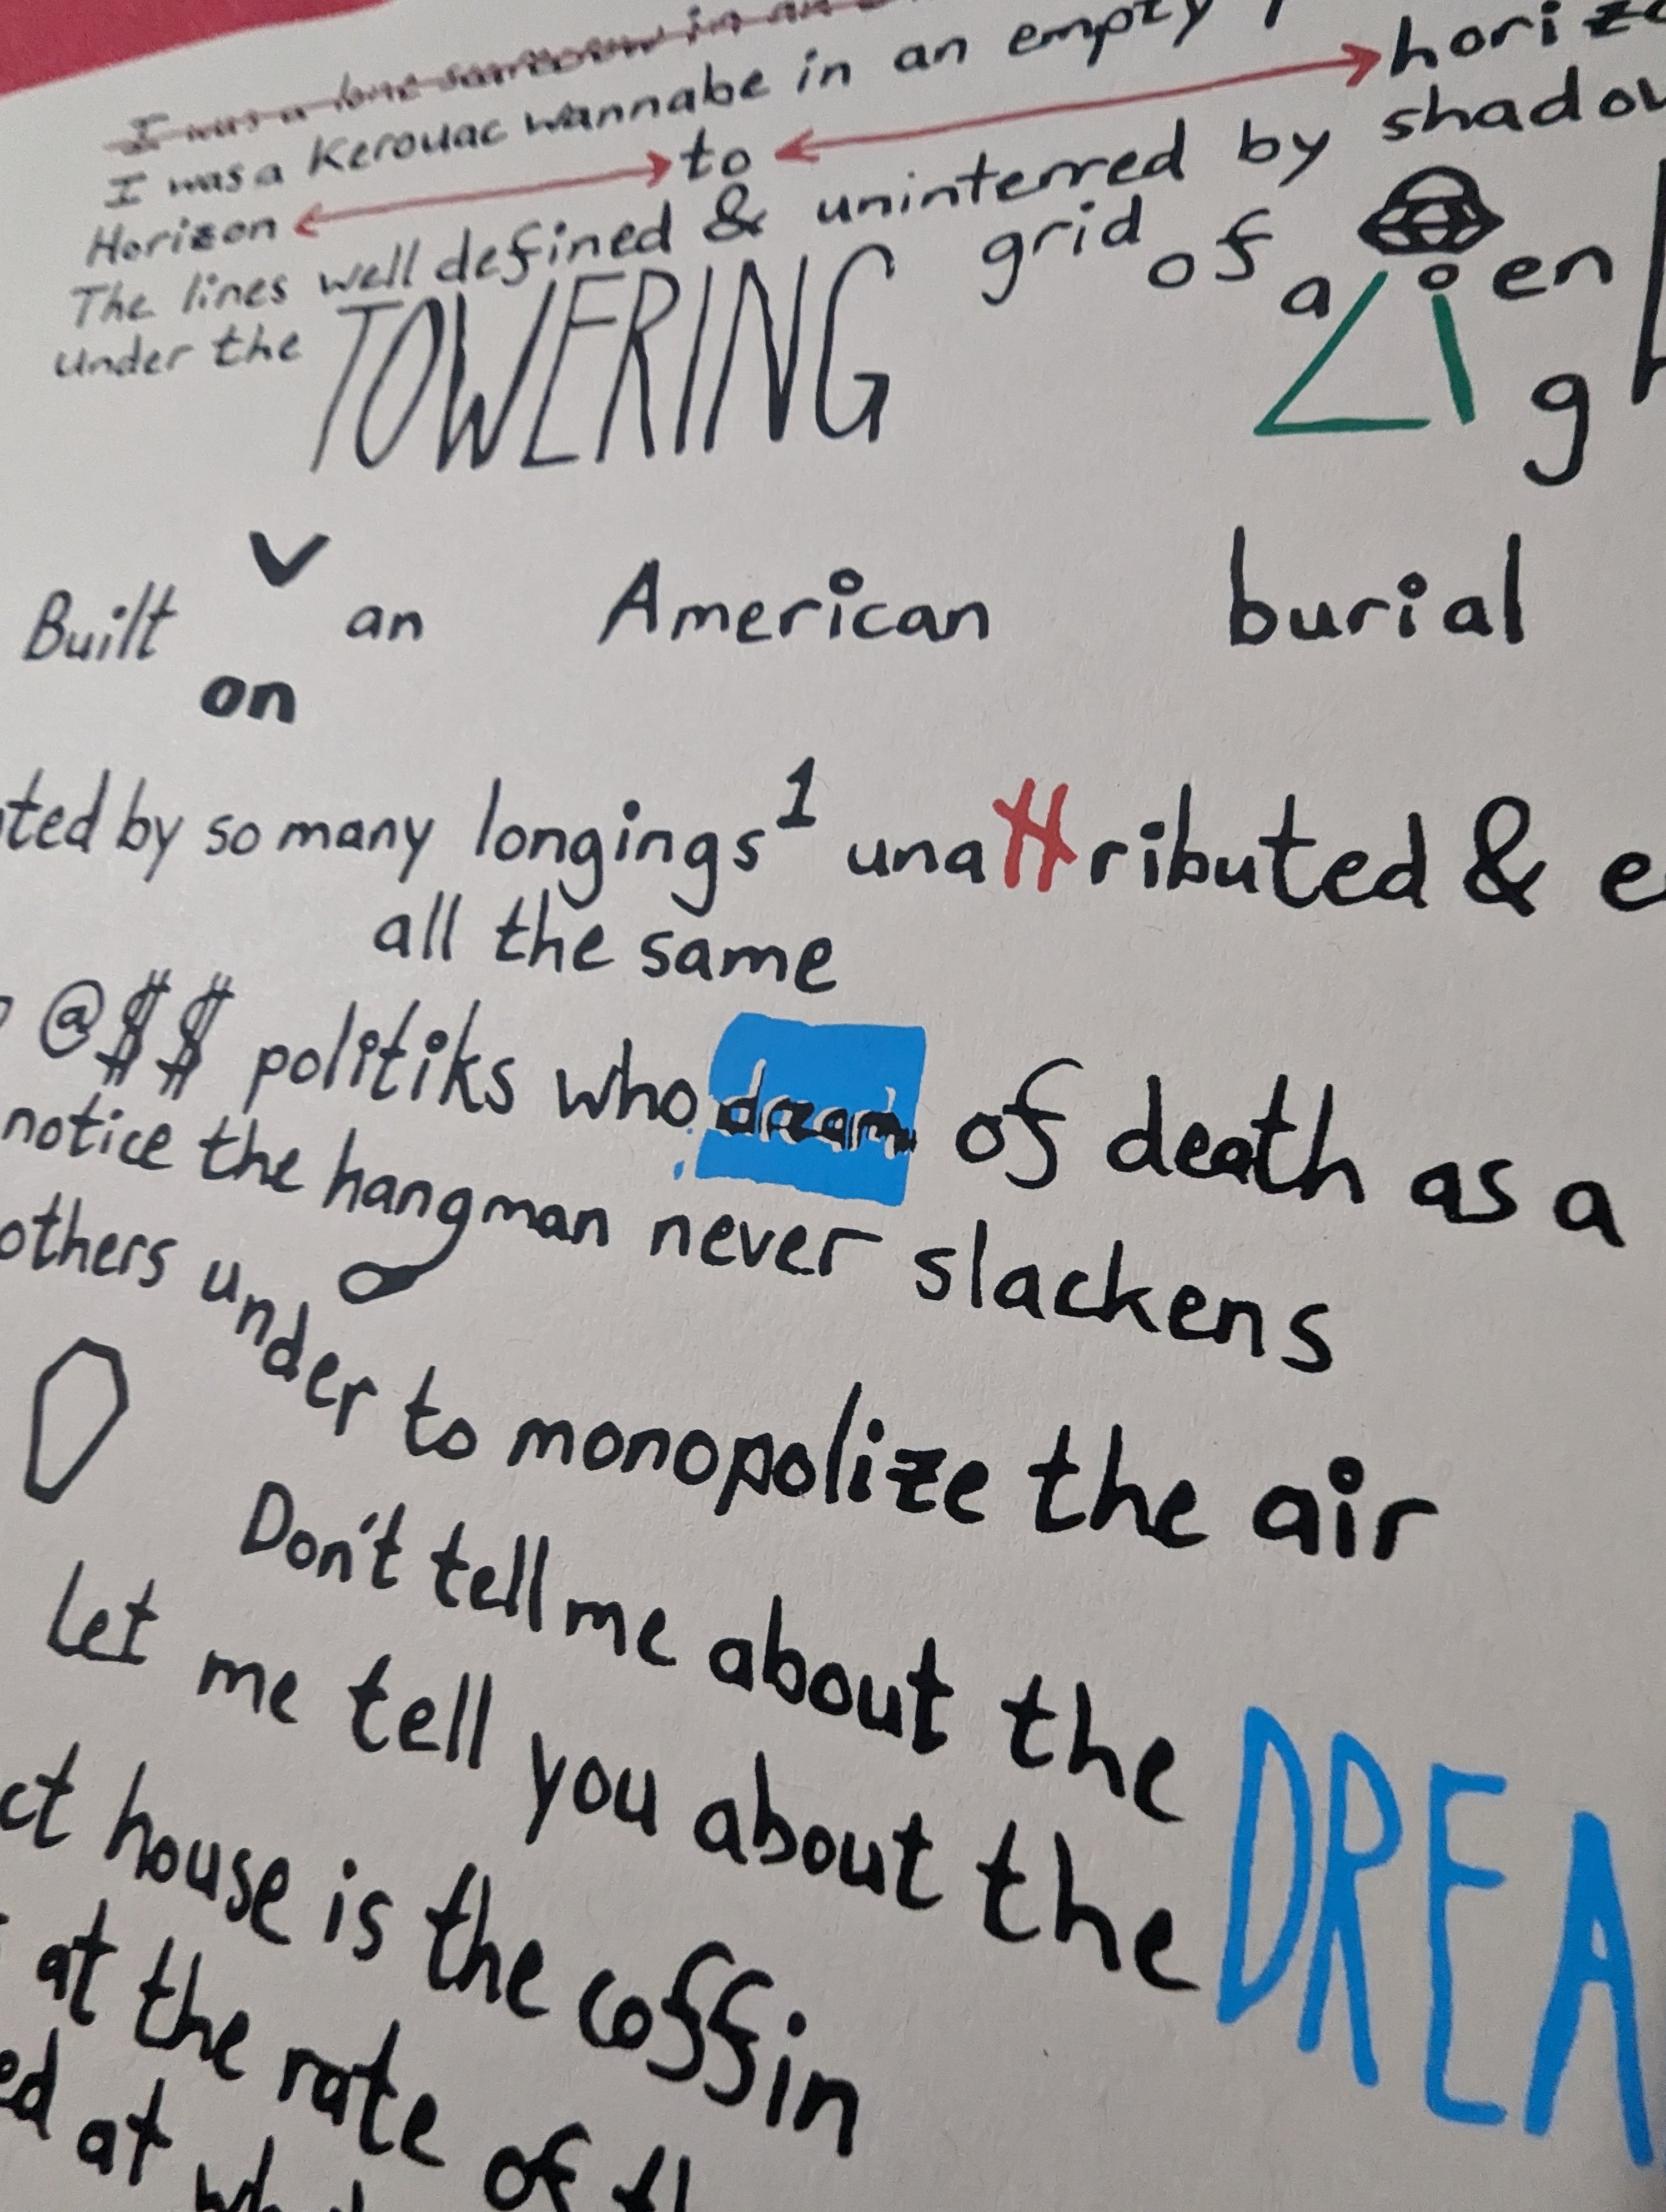 I was a lone in an
I was a Kerouac wannabe in an empty
Horizon to horizo
The lines well defined & uninterred by shadow
under the TOWERING grid of alien
g
Built an American burial
on
ted by so many longings¹ unattributed & e
all the same
@$$ politiks who dream of death as a
notice the hangman never slackens
others under to monopolize the air
Don't tell me about the
Let me tell you about the DREA
ct house is the coffin
at the rate of
ed at